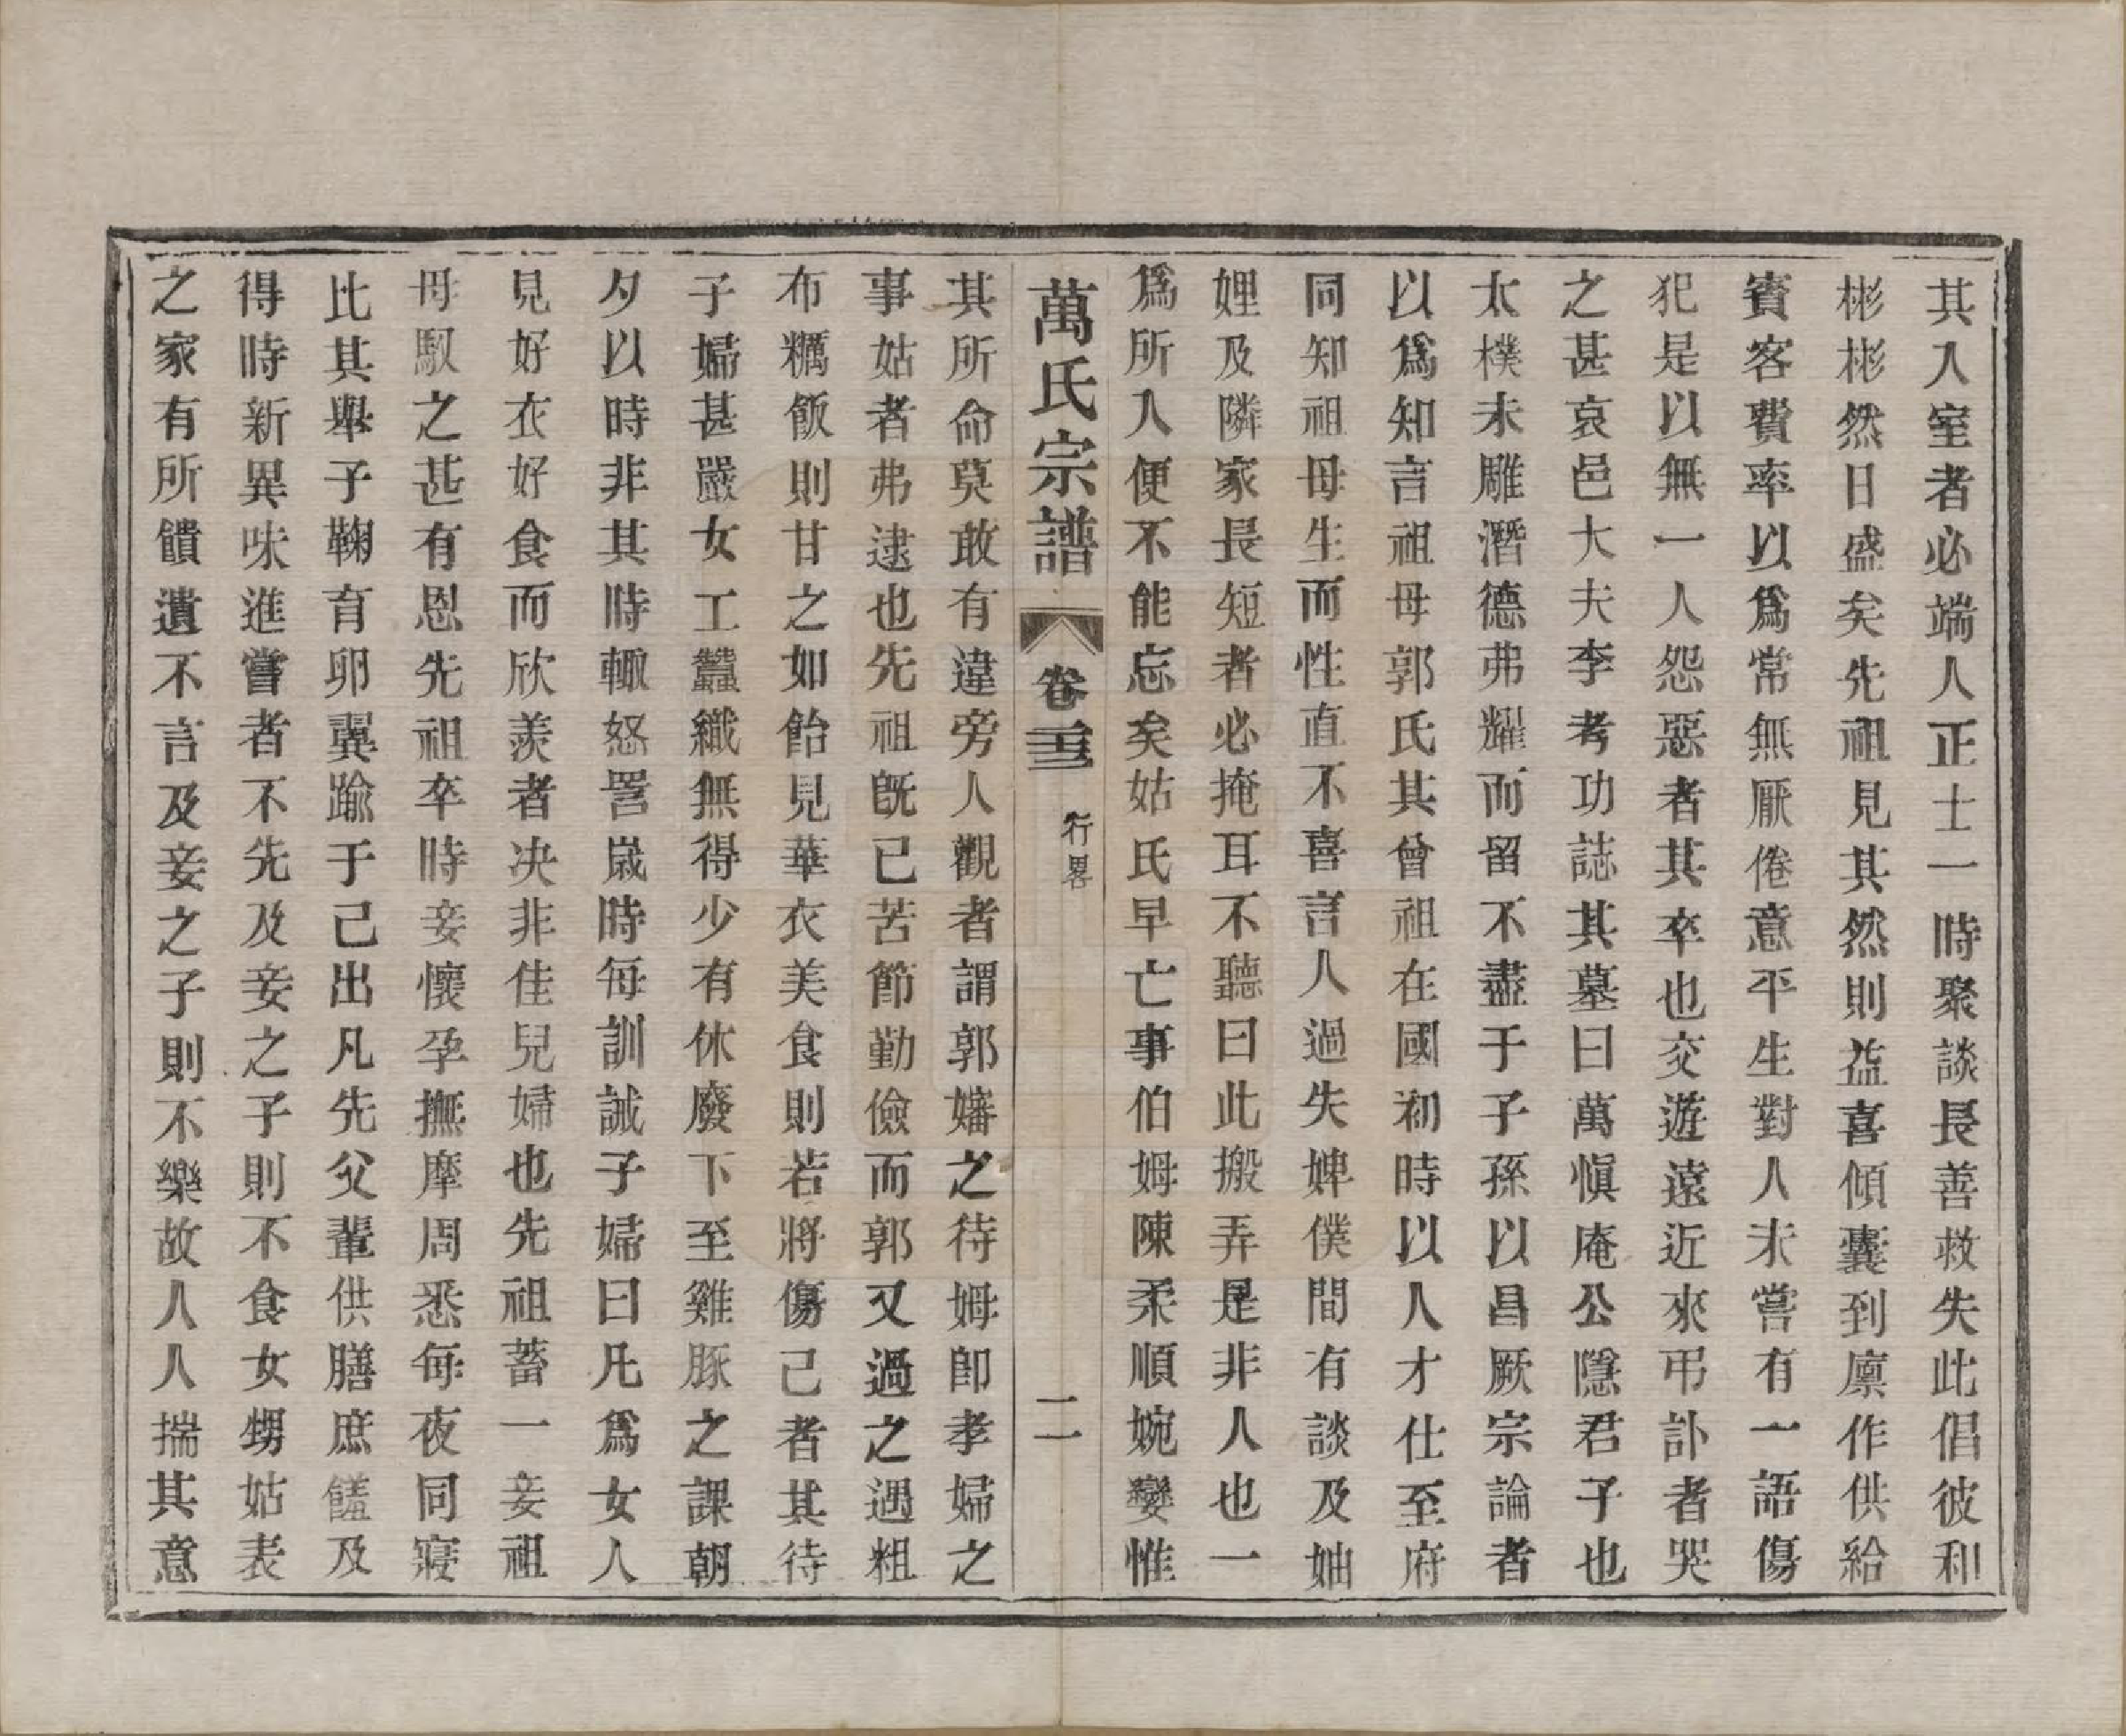 其入室者必端人正士一時聚談長善救失此倡彼和
彬彬然日盛矣先祖見其然則益喜傾囊到廪作供給
賓客費率以爲常無厭倦意平生對人未嘗有一語傷
犯是以無一人怨惡者其卒也交遊遠近來弔訃者哭
之甚哀邑大夫李考功誌其墓曰萬愼庵公隱君子也
太樸未雕潛德弗耀而留不盡于子孫以昌厥宗論者
以爲知言祖母郭氏其曾祖在國初時以人才仕至府
同知祖母生而性直不喜言人過失婢僕間有談及妯
娌及隣家長短者必掩耳不聽曰此搬弄是非人也一
爲所入便不能忘矣姑氏早亡事伯姆陳柔順婉孌惟
萬氏宗譜
卷三
行畧
二
其所命莫敢有違旁人觀者謂郭嬸之待姆卽孝婦之
事姑者弗逮也先祖旣已苦節勤儉而郭又過之遇粗
布糲飯則甘之如飴見華衣美食則若將傷己者其待
子婦甚嚴女工蠶織無得少有休廢下至雞豚之課朝
夕以時非其時輙怒詈歲時每訓誡子婦曰凡爲女人
見好衣好食而欣羨者决非佳兒婦也先祖蓄一妾祖
母馭之甚有恩先祖卒時妾懷孕撫摩周悉每夜同寢
比其舉子鞠育卵翼踰于己出凡先父輩供膳庶饈及
得時新異味進嘗者不先及妾之子則不食女甥姑表
之家有所饋遺不言及妾之子則不樂故人人揣其意